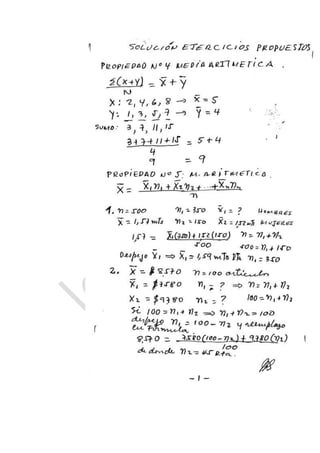 1 SOLUCIÓN EJERCICIOS PROPUESTOS
PROPIEDAD Nº 4 MEDIA ARITMETICA.
Σ(x+y)/N = X̄ + Ȳ
X: 2, 4, 6, 8 → X̄ = 5
Y: 1, 3, 5, 7 → Ȳ = 4
SUMO: 3, 7, 11, 15
3+7+11+15 / 4 = 5+4
9 = 9
PROPIEDAD Nº 5: M. ARITMETICA.
X̄ = X̄₁n₁ + X̄₂n₂ + ...+X̄n nn / n
1. n = 500 n₁ = 350 X̄₁ = ? HOMBRES
X̄ = 1,57 mts n₂ = 150 X̄₂ = 152 mts MUJERES
1,57 = X̄₁(350) + 152(150) / 500 n = n₁ + n₂
500 = n₁ + 150
Despejo X̄₁ ⇒ X̄₁ = 1,59 mts Rta n₁ = 350
2. X̄ = $ 8,570 n = 100 artículos
X̄₁ = $ 7580 n₁ = ? ⇒ n = n₁ + n₂
X̄₂ = $ 9780 n₂ = ? 100 = n₁ + n₂
Si 100 = n₁ + n₂ ⇒ n₁ + n₂ = 100
despejo n₁ = 100 - n₂ y reemplazo
en Fórmula.
8,570 = 7580(100 - n₂) + 9,780(n₂) / 100
de donde n₂ = 45 Rta.
- 1 -